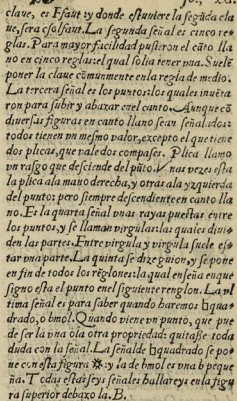 clave, es Ffaut: y donde estuuiere la segũda cla
ue, sera csolfaut. La segunda señal es cinco re
glas. Para mayor facilidad pusieron el cãto lla
no en cinco reglas: el qual solia tener vna. Suelē
poner la clave comũnmente enla regla de medio.
La tercera señal es los puntos: los quales inuēta
ron para subir y abaxar enel canto. Aunque cõ
diuersas figuras en canto llano sean señalados:
todos tienen vn mesmo valor, excepto el que tiene
dos plicas, que vale dos compases. Plica llamo
vn rasgo que desciende del pũto. Vnas vezes esta
la plica ala mano derecha, y otras ala yzquierda
del punto: pero siempre descendiente en canto lla
no. Es la quarta señal vnas rayas puestas entre
los puntos, y se llaman virgulas: las quales diui-
den las partes. Entre virgula y virgula suele es-
tar vna parte. La quinta se dize guion, y se pone
en fin de todos los rẽglones: la qual enseña en que
signo esta el punto enel siguiente renglon. La vl
tima señal es para saber quando haremos ♮qua
drado, o bmol. Quando viene vn punto, que pue
de ser la vna o la otra propriedad: quitasse toda
duda con la señal. La señal de ♮quadrado se po-
ne con esta figura ※: y la de bmol es vna b peque
ña. Todas estas seys señales hallareys enla figu
ra superior debaxo la. B.